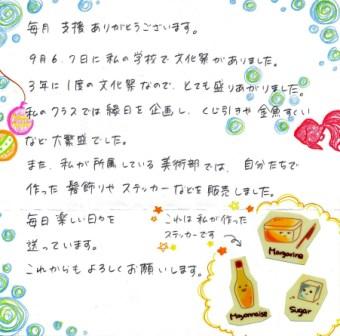 毎月 支援 ありがとうございます。
9月6.7日に私の学校で文化祭がありました。
3年に1度の文化祭なので、とても盛りあがりました。
私のクラスでは縁日を企画し、くじ引きや金魚すくい
など大繁盛でした。
また、私が所属している美術部では、自分たちで
作った髪飾りやステッカーなどを販売しました。
毎日楽しい日々を
送っています。
これからもよろしくお願いします。
これは私が作った
ステッカーです
Margarine
Mayonnaise
Sugar